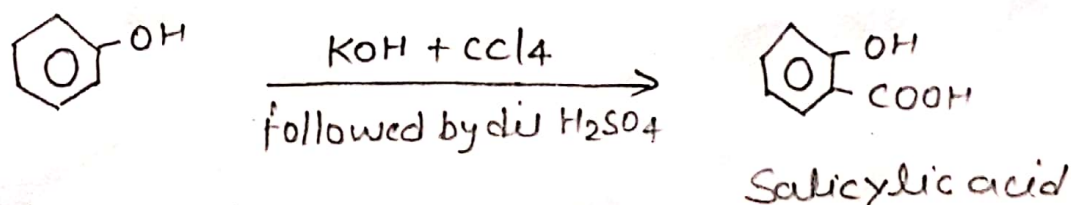 OH
KOH + CCl4
followed by dil H2SO4
OH
COOH
Salicylic acid